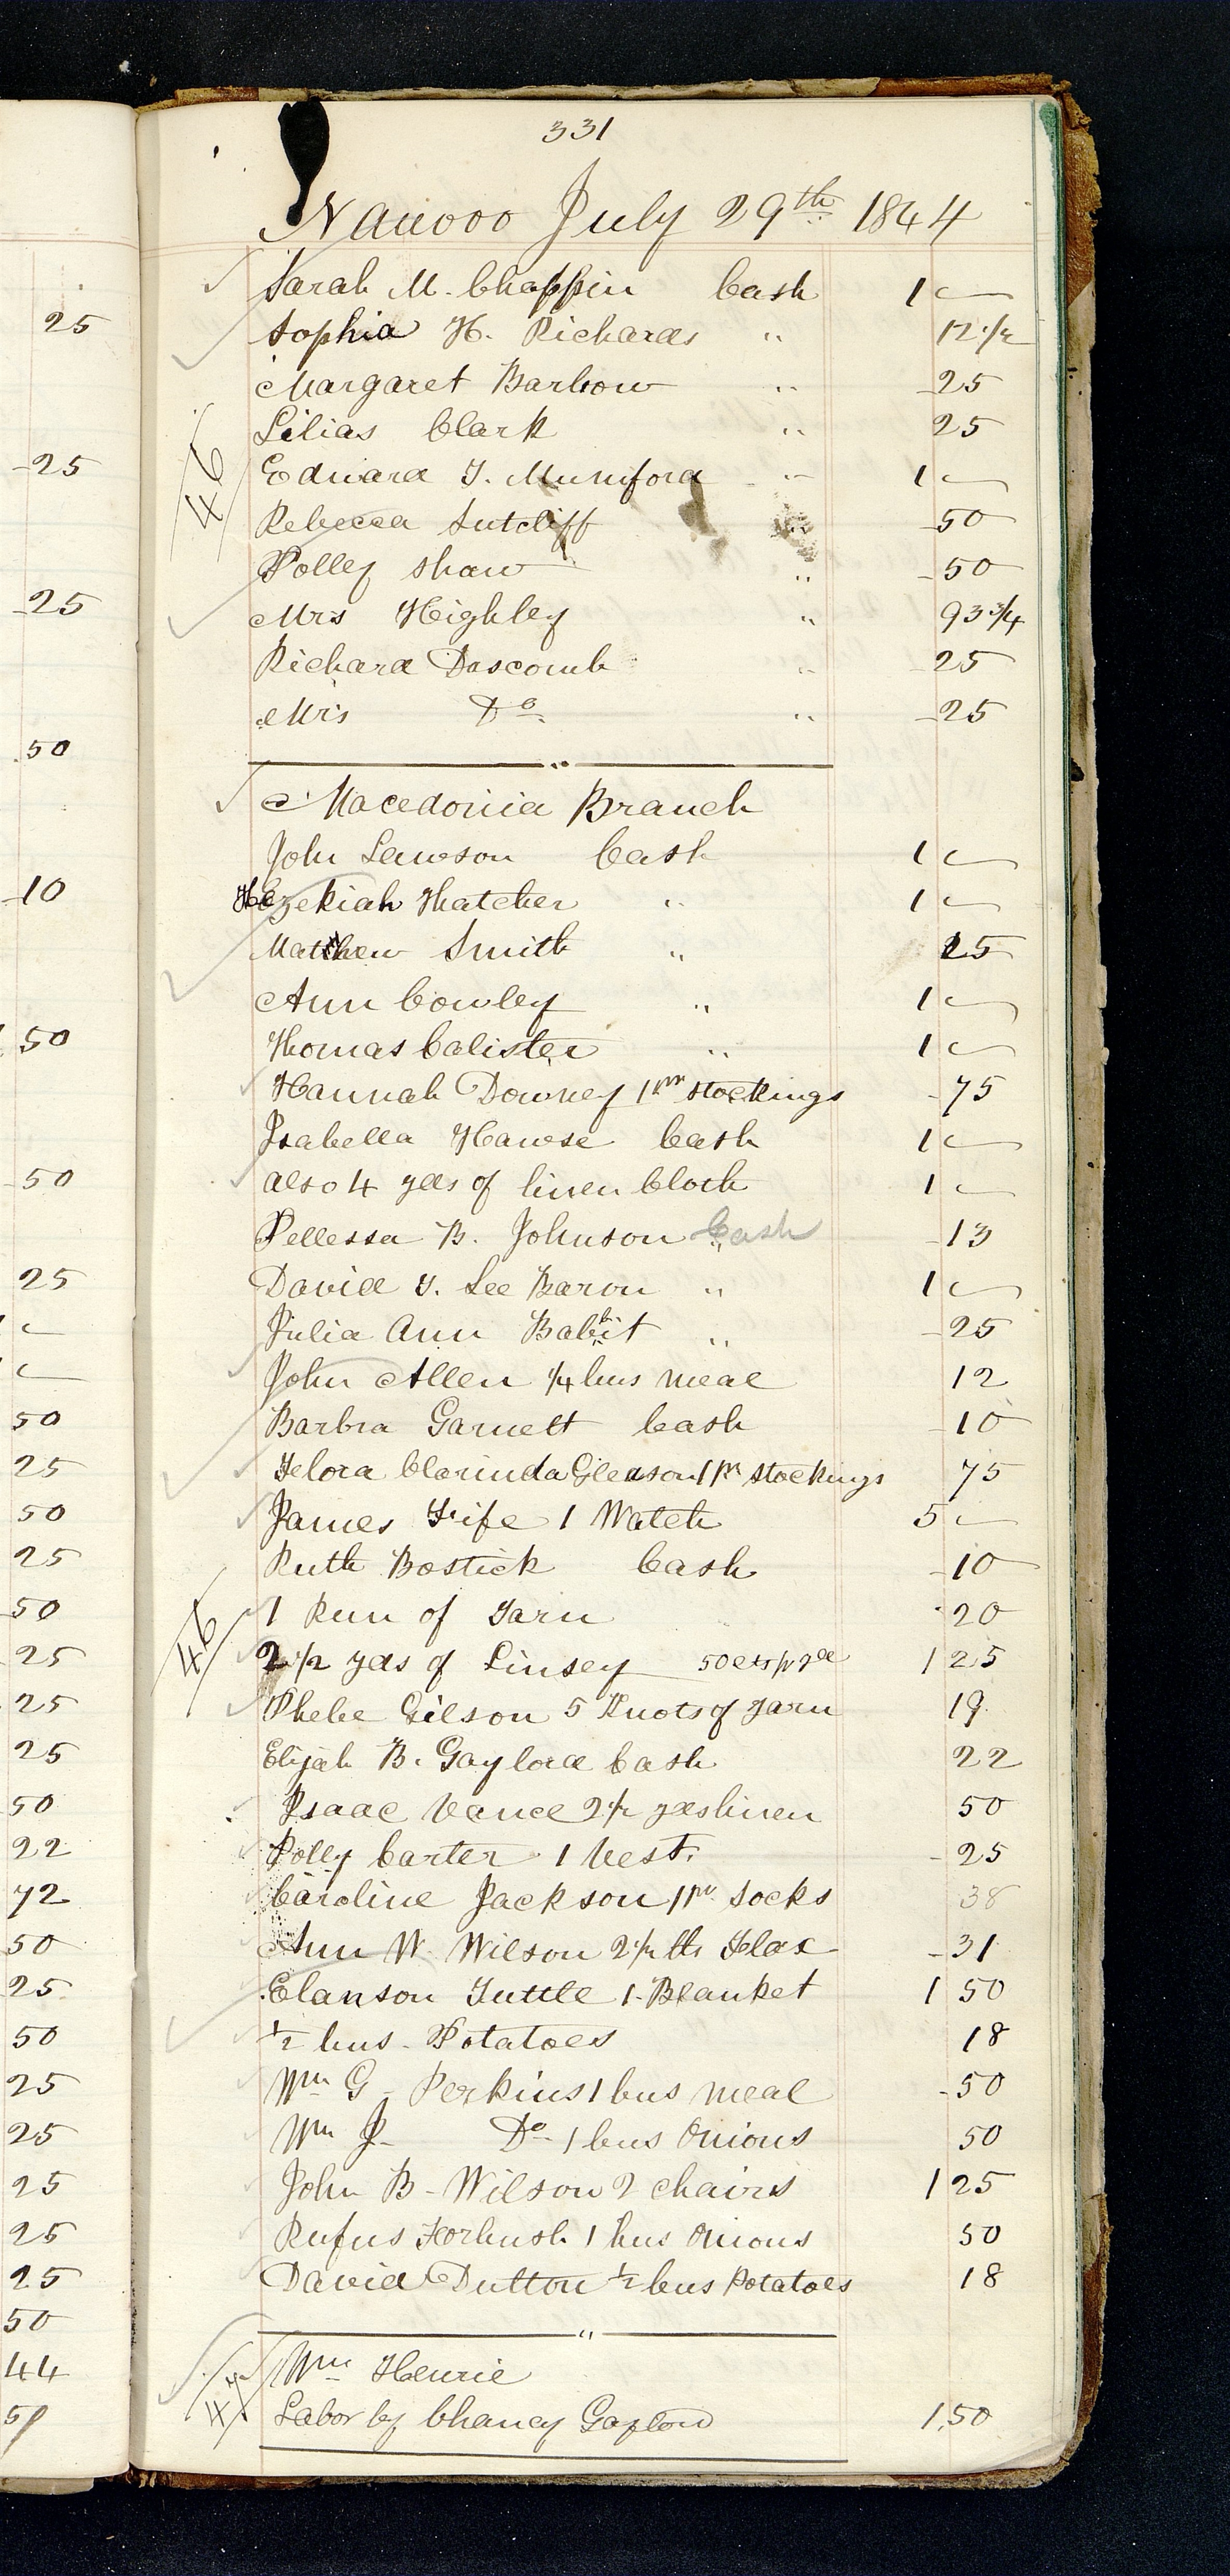 331
Nauvoo July 29th 1844
Sarah M. Chappin Cash 1 —
Sophia H. Richards " 12 1/2
Margaret Barlow " 25
Lilias Clark " 25
Edward T. Mumford " 1 —
Rebecca Sutcliff " 50
Polley Shaw " 50
Mrs Highley " 93 3/4
Richard Dascomb " 25
Mrs Do " 25
Macedonia Branch
John Lawson Cash 1 —
Hezekiah Thatcher " 1 —
Matthew Smith " 25
Ann Cowley " 1 —
Thomas Calister " 1 —
Hannah Downey 1 pr stockings 75
Isabella Hawse Cash 1 —
also 4 yds of linen Cloth 1 —
Pellessa B. Johnson Cash 13
David T. Lee Baron " 1 —
Julia Ann Babbit " 25
John Allen 1/4 bus meal 12
Barbra Garnett Cash 10
Flora Clarinda Gleason 1 pr stockings 75
James Fife 1 Watch 5 —
Ruth Bostick Cash 10
1 Run of Yarn 20
46
2 1/2 yds of Linsey 50 cts pr yd 1 25
Phebe Gilson 5 Knots of yarn 19
Elijah B. Gaylord Cash 22
Isaac Vance 2 1/2 yds linen 50
Polly Carter 1 Vest. 25
Caroline Jackson 1 pr Socks 38
Ann W. Wilson 2 1/2 lbs Flax 31
Elanson Tuttle 1 Blanket 1 50
1/2 bus. Potatoes 18
Wm G. Perkins 1 bus meal 50
Wm J. Do 1 bus Onions 50
John B. Wilson 2 chairs 1 25
Rufus Forbush 1 bus Onions 50
David Dutton 1/2 bus Potatoes 18
Wm Henrie
Labor by Chancy Gaylord 1.50